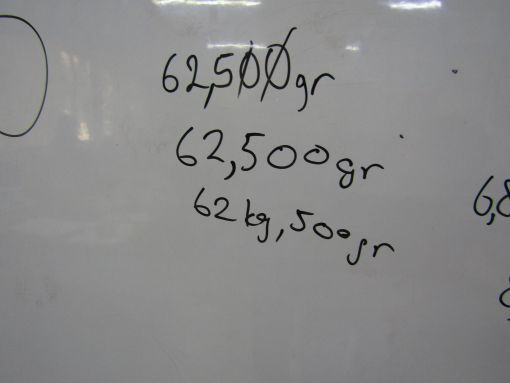 62,500gr
62,500gr
62kg,500gr
6,8